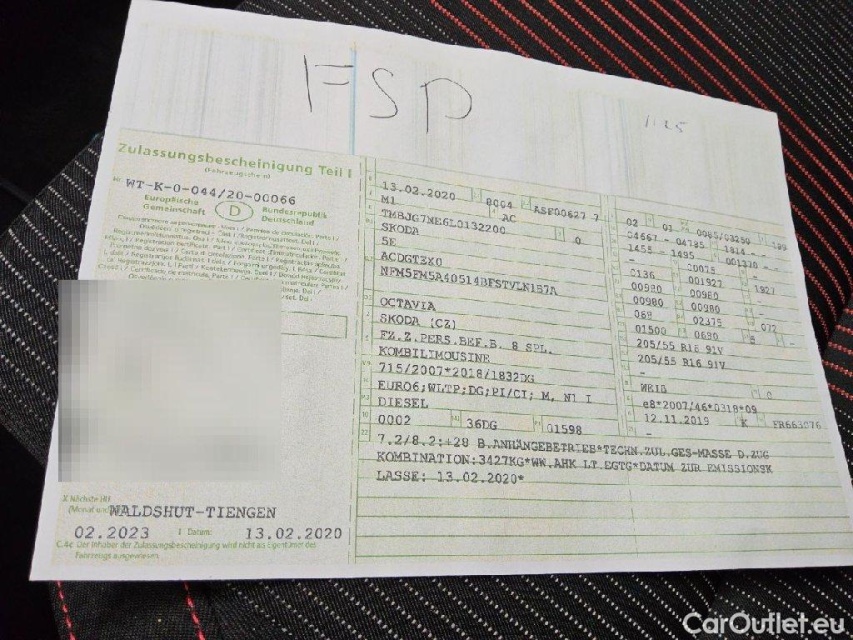 FSP
1.25
Zulassungsbescheinigung Teil I
(Fahrzeugschein)
WT-K-0-044/20-00066
Europäische Gemeinschaft D Bundesrepublik Deutschland
X Nächste HU
WALDSHUT-TIENGEN
02.2023 I Datum: 13.02.2020
C.4c Der Inhaber der Zulassungsbescheinigung wird nicht als Eigentümer des
Fahrzeugs ausgewiesen.
13.02.2020 8004 ASF00627 7
M1 AC
TMBJG7NE6L0132200 0
SKODA
5E
ACDGTZX0
NFM5FM5A40514BFSTVLN1B7A
OCTAVIA
SKODA (CZ)
FZ.Z.PERS.BEF.B. 8 SPL.
KOMBILIMOUSINE
715/2007*2018/1832DG
EURO6;WLTP;DG;PI/CI; M, N1 I
DIESEL
0002 36DG 01598
7.2/8.2:+28 B.ANHÄNGEBETRIEB*TECHN.ZUL.GES-MASSE D.ZUG
KOMBINATION:3427KG*WW.AHK LT.EGTG*DATUM ZUR EMISSIONSK
LASSE: 13.02.2020*
02 01 0085/03250
04667 - 04785 1814 -
1455 - 1495 001330 - -
- 00075
0136 001927 1927
00980 00980
00980 00980
068 02375 072
01500 0690
205/55 R16 91V
205/55 R16 91V
-
WEIß
e8*2007/46*0318*09
12.11.2019 K
-
CarOutlet.eu